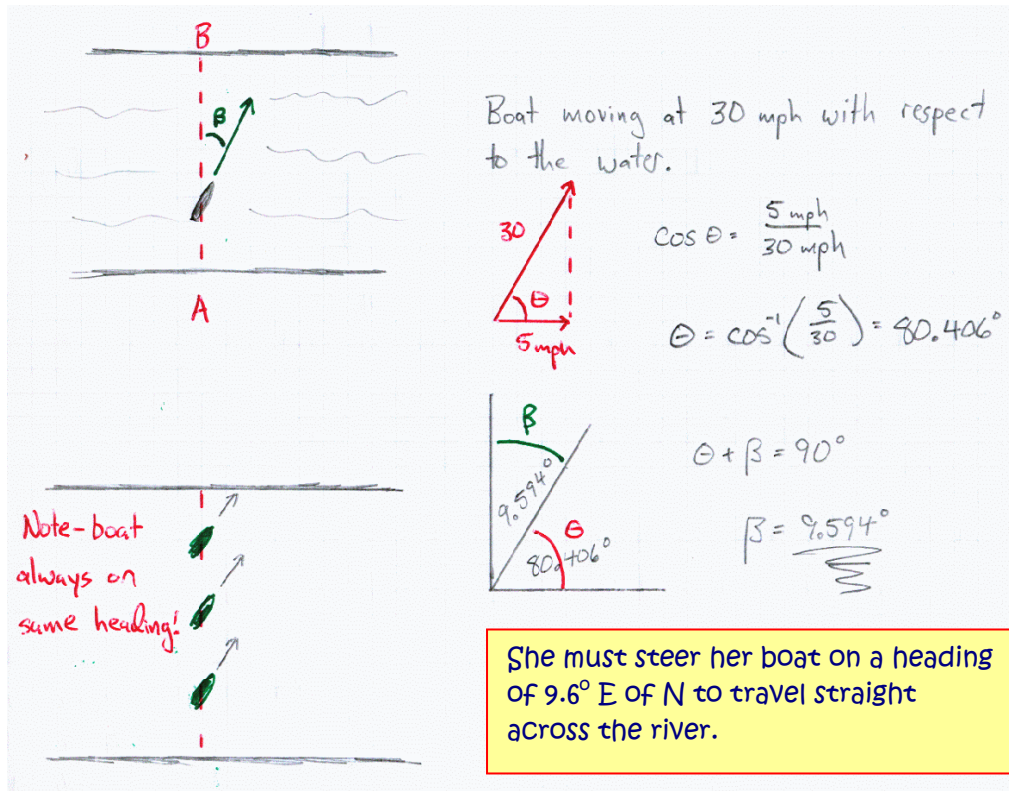 B
β
A
Boat moving at 30 mph with respect
to the water.
30
θ
5 mph
cos θ = 5 mph / 30 mph
θ = cos⁻¹(5/30) = 80.406°
β
9.594°
θ
80.406°
θ + β = 90°
β = 9.594°
Note-boat
always on
same heading!
She must steer her boat on a heading
of 9.6° E of N to travel straight
across the river.